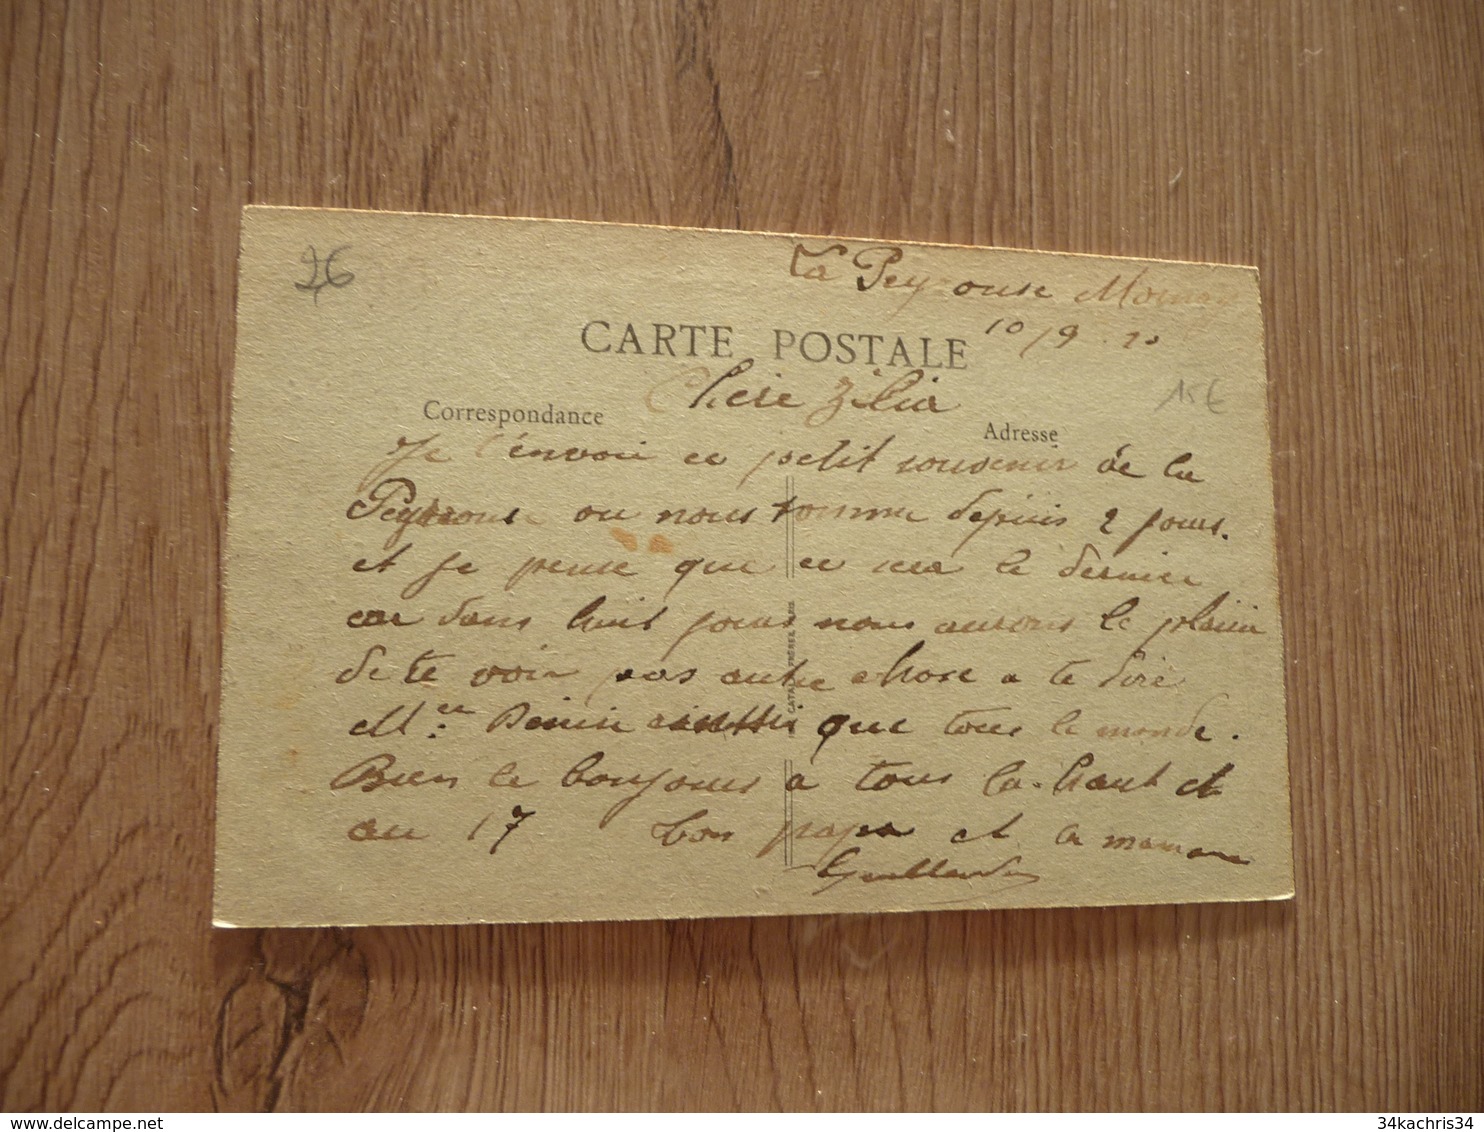 26
La Peyrouse Mornay
10/9
CARTE POSTALE
15€
Chere Zélia
Correspondance
Adresse
Je t'envoie ce petit souvenir de la
Peyrouse ou nous somme depuis 2 jours.
et je pense que ce sera le dernier
car dans huit jours nous aurons le plaisir
de te voir pas autre chose a te dire
Melle Denise aussi que tous le monde.
Bien le bonjours à tous la-haut et
au 17 bon papa et a maman
FRÈRES PARIS
34kachris34